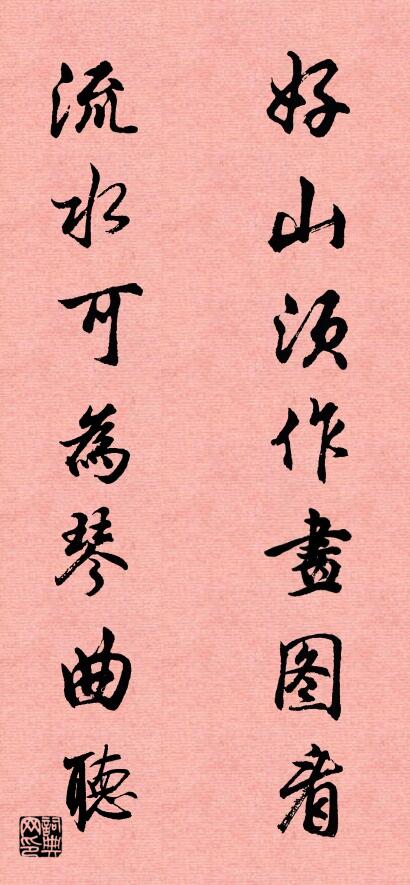 好山须作畫图看
流水可為琴曲聽
詞典网印